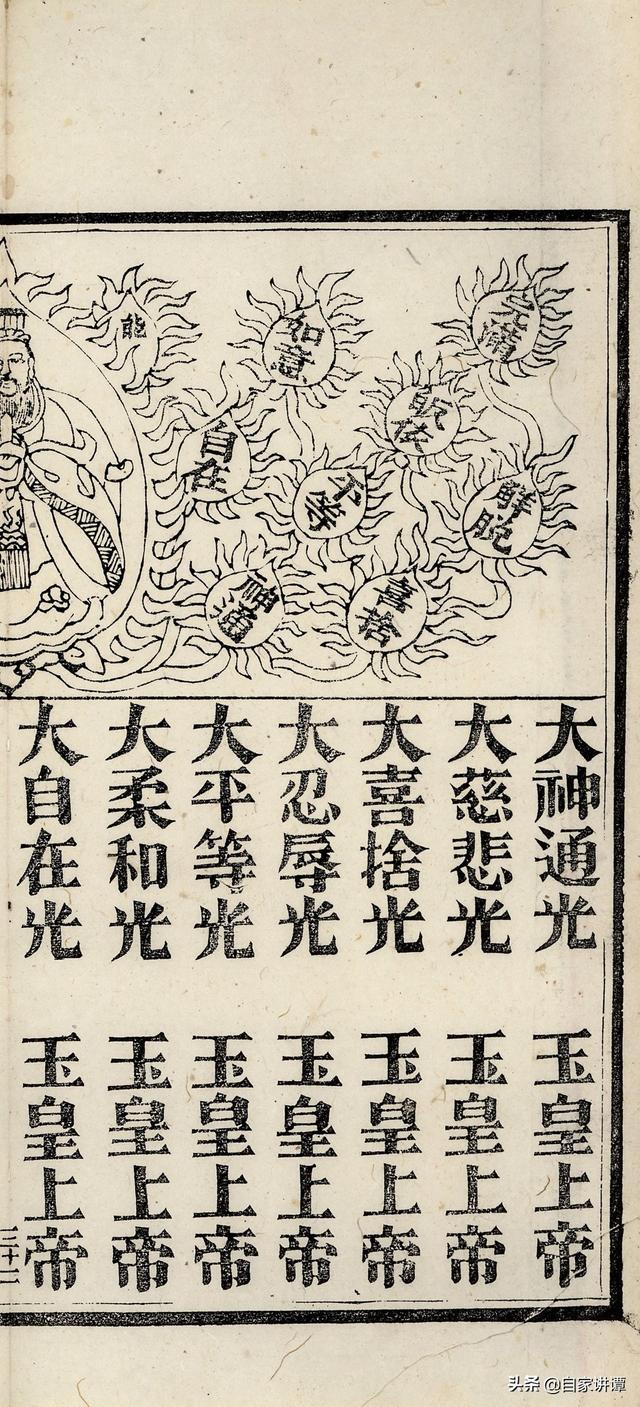 完滿
如意
能
皈依
自在
平等
解脫
神通
喜捨
大神通光　玉皇上帝
大慈悲光　玉皇上帝
大喜捨光　玉皇上帝
大忍辱光　玉皇上帝
大平等光　玉皇上帝
大柔和光　玉皇上帝
大自在光　玉皇上帝
三十二
头条 @自家讲谭